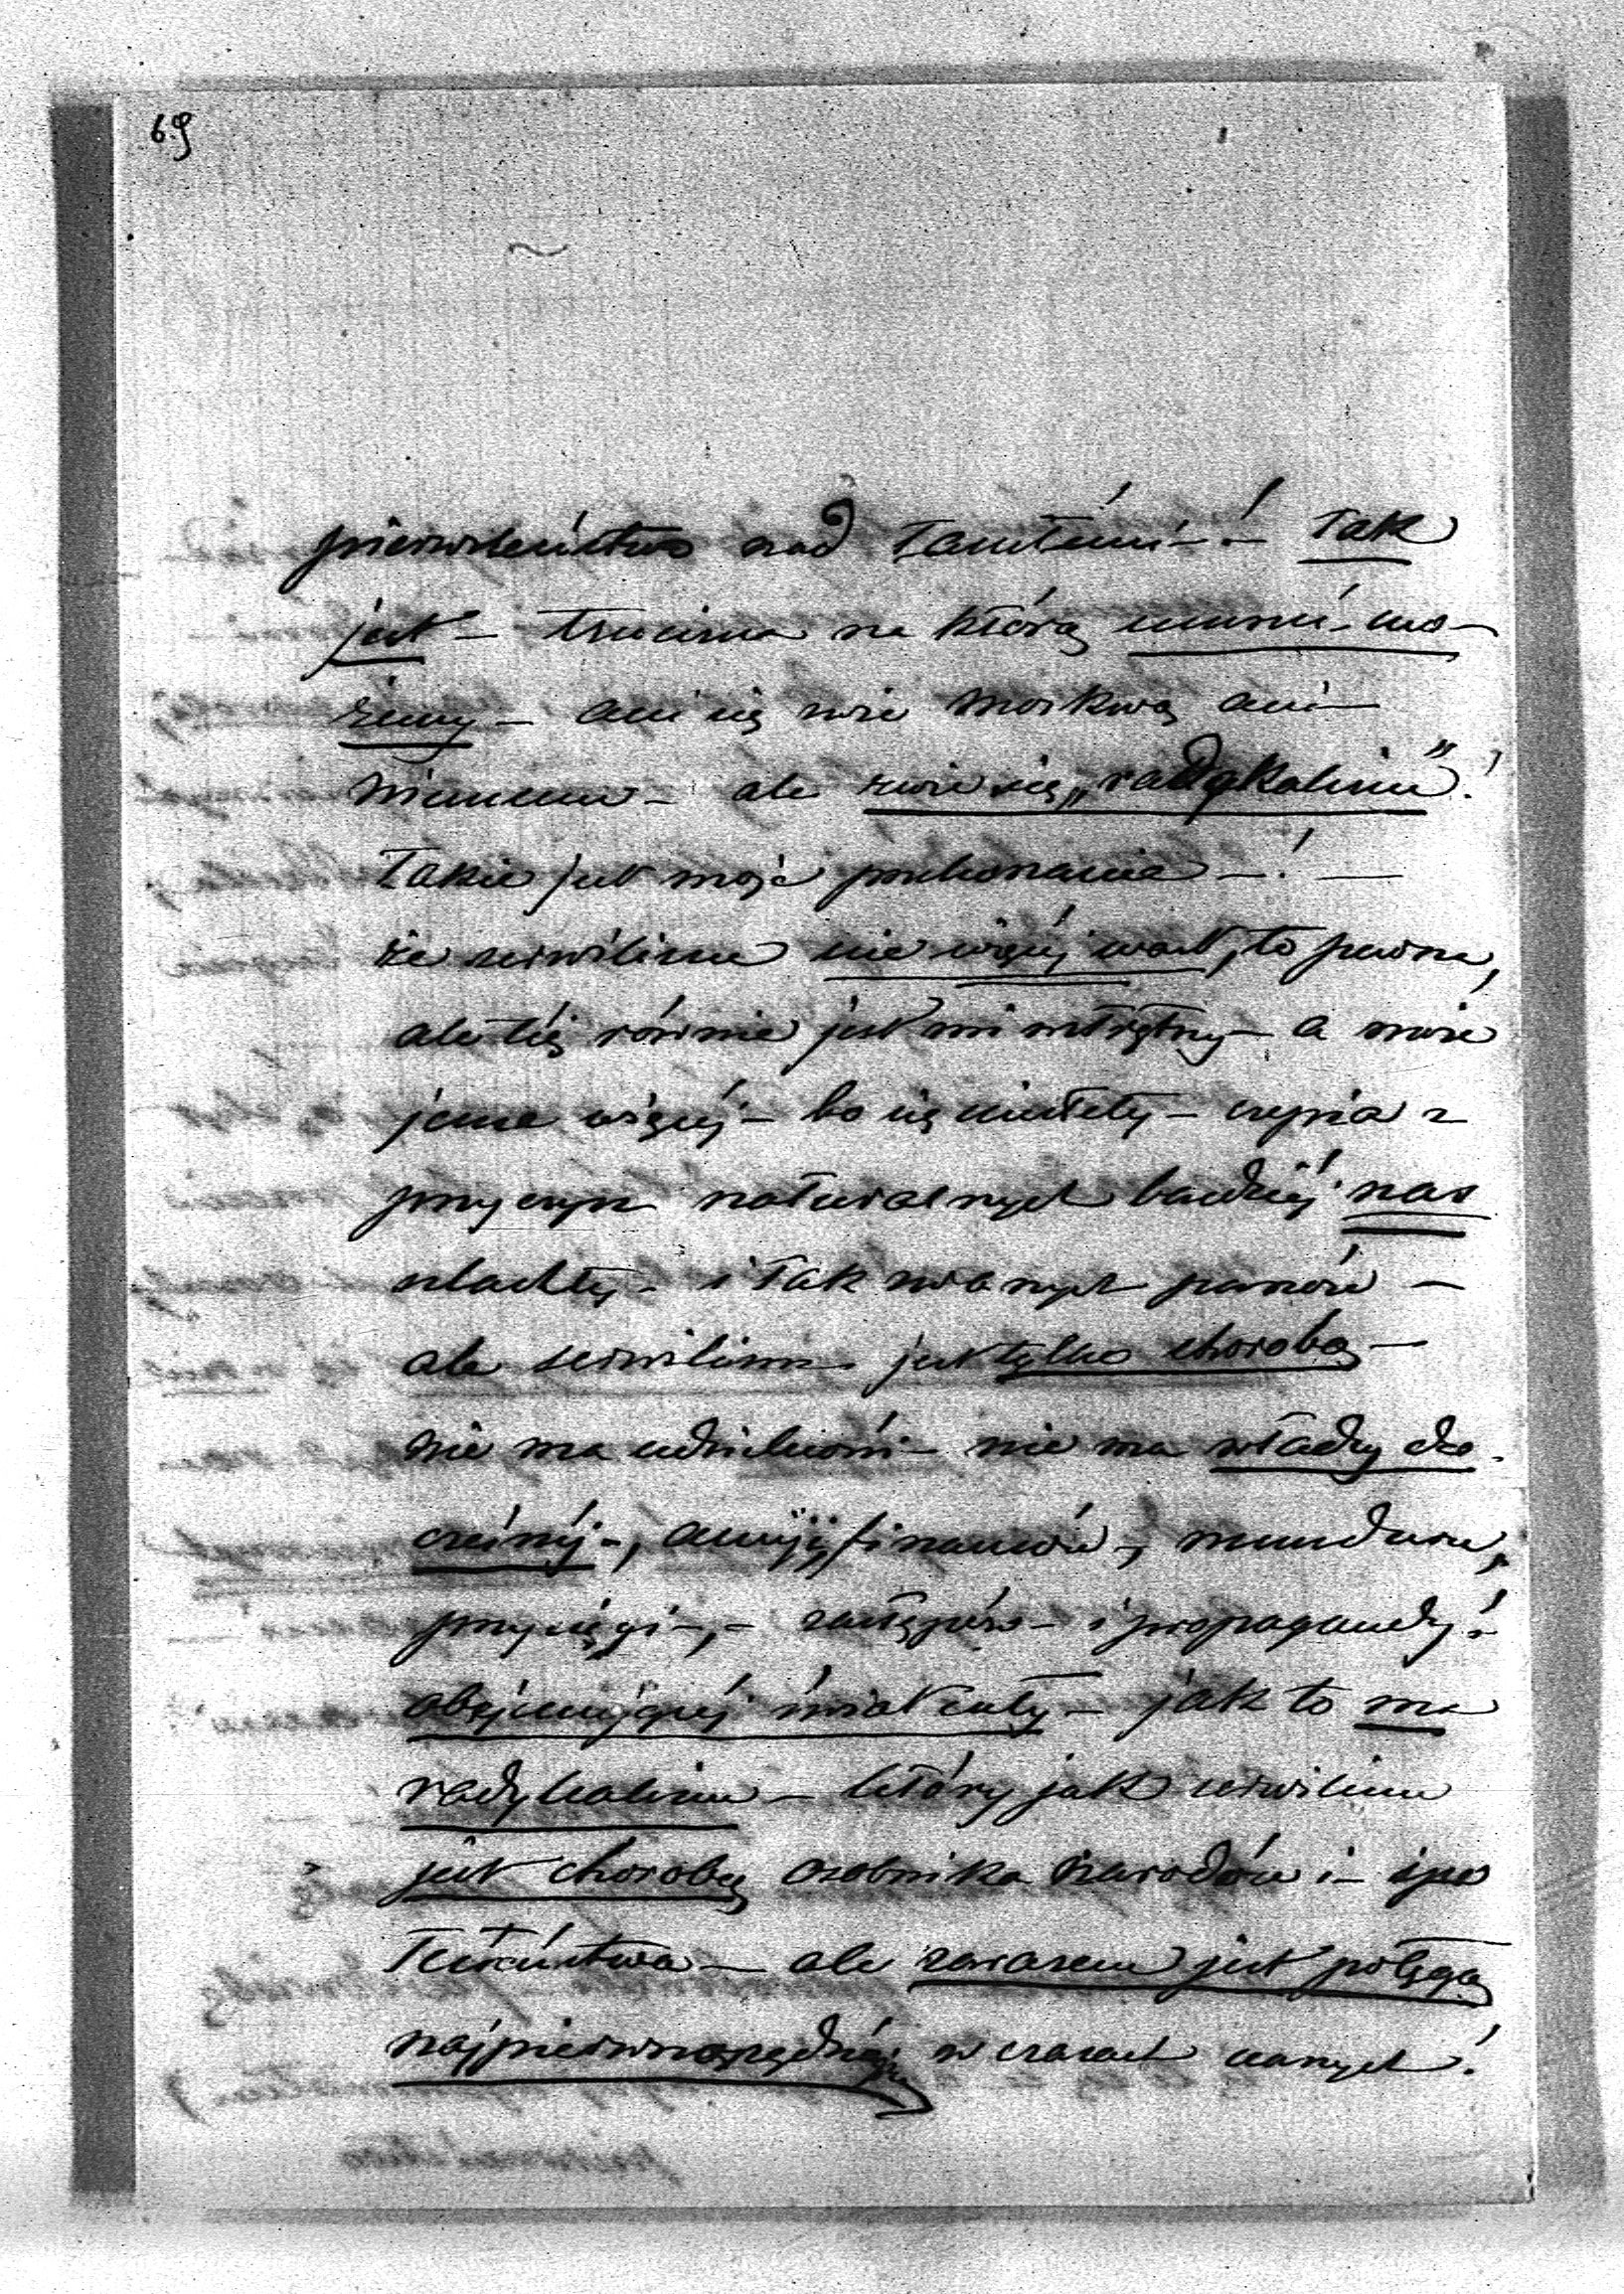 69
pierwszeństwo nad tamtémi –! Tak
jest – trucizna na którą umrzéć mo-
żemy – ani się zwie Moskwą ani
Niemcem – ale zwie się „radykalizm”!
Takie jest moje przekonanie –! —
że serwilizm nie więcéj wart, to pewna,
ale téż równie jest mi wstrętny – a może
jeszcze więcéj – bo się niestety – czepia z
przyczyn naturalnych bardziéj nas
szlachty – i tak zwanych panów –
ale serwilizm jest tylko chorobą –
nie ma udzielności – nie ma władzy do-
cześnéj –, armji, finansów –, munduru,
przysięgi –, – zastępów – i propagandy!
obejmującéj świat cały – jak to ma
radykalizm – który jak serwilizm
jest chorobą osobnika narodów i – spo
łeczeństwa – ale zarazem jest potęgą
najpierwszorzędniejszą w czasach danych!